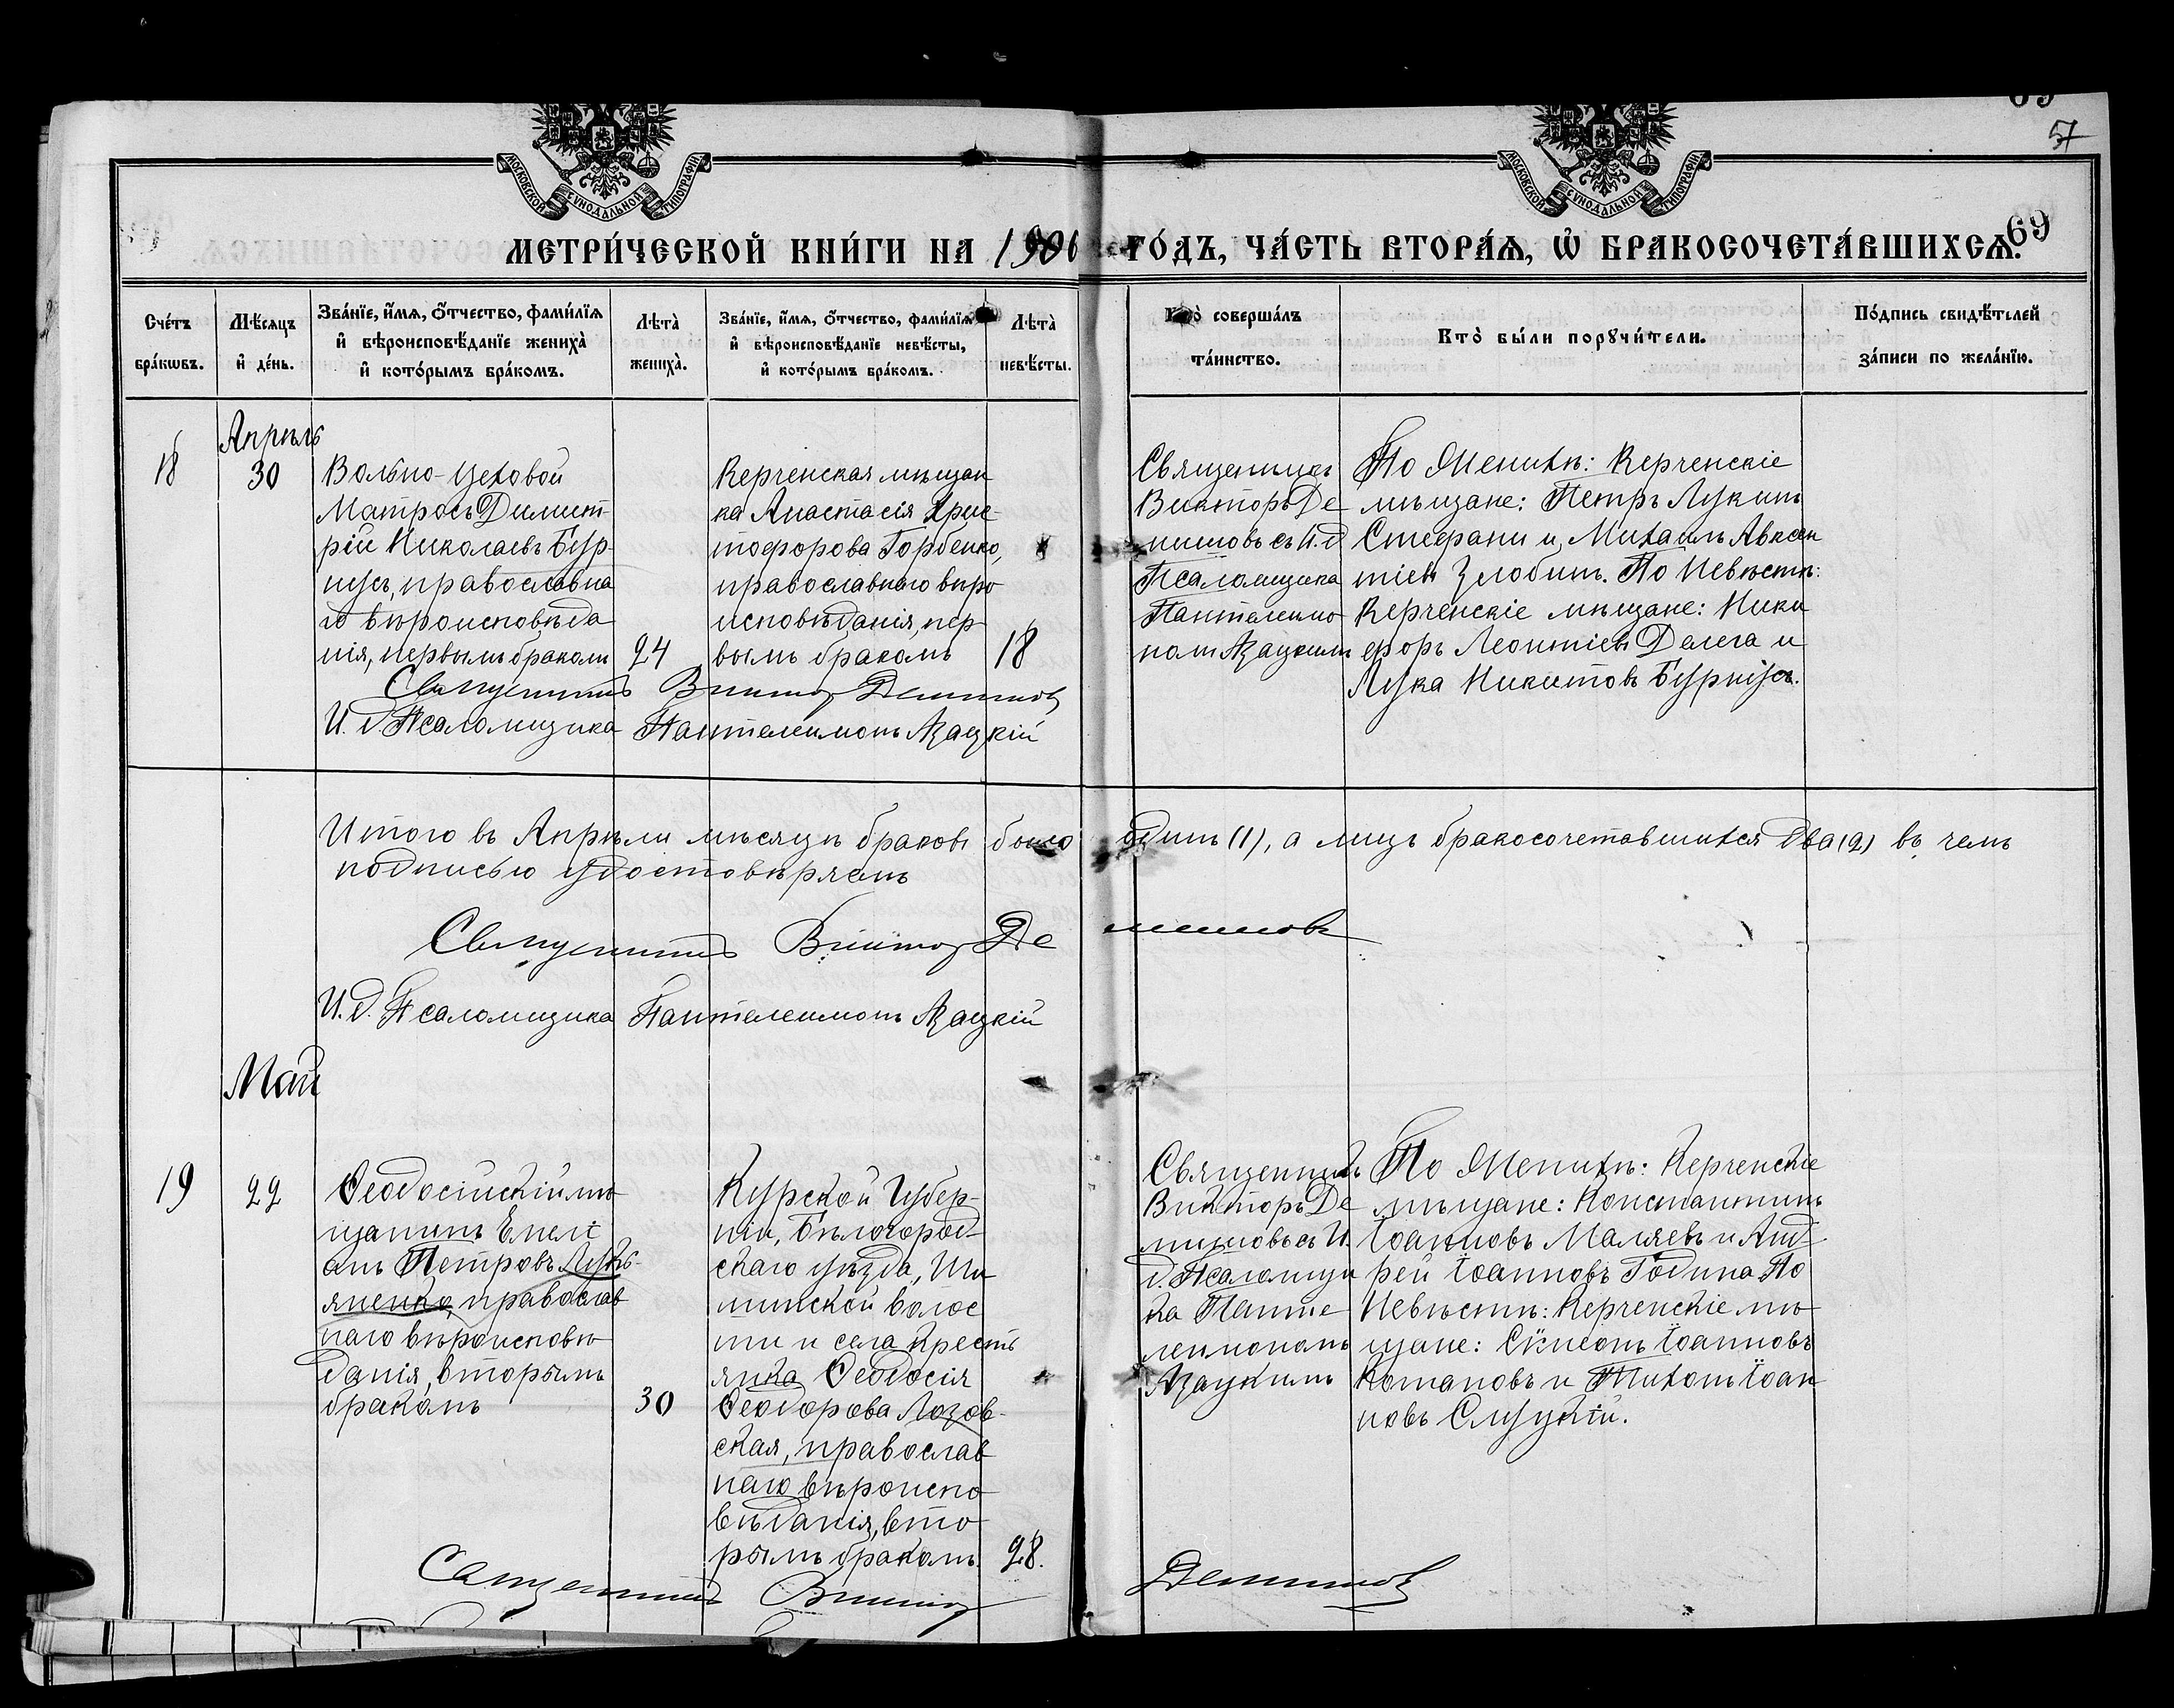 57
69
МОСКОВСКОЙ СѴНОДАЛЬНОЙ ТИПОГРАФІИ
МОСКОВСКОЙ СѴНОДАЛЬНОЙ ТИПОГРАФІИ
МЕТРИ́ЧЕСКОЙ КНИ́ГИ НА 1906 ГО́ДЪ, ЧА́СТЬ ВТОРА́Ѧ, Ѽ БРАКОСОЧЕТА́ВШИХСѦ.
Сче́тъ
бра́кѡвъ.
Мѣ́сяцъ
и҆ де́нь.
Зва́нїе, и҆́мѧ, ѻ҆́тчество, фами́лїѧ
и҆ вѣроисповѣ́данїе жениха̀
и҆ кото́рымъ бра́комъ.
Лѣта̀
жениха̀.
Зва́нїе, и҆́мѧ, ѻ҆́тчество, фами́лїѧ
и҆ вѣроисповѣ́данїе невѣ́сты,
и҆ кото́рымъ бра́комъ.
Лѣта̀
невѣ́сты.
Кто̀ соверша́лъ
та́инство.
Кто̀ бы́ли порꙋчи́тели.
По́дпись свидѣ́телей
за́писи по жела́нїю.
18
Апрѣль
30
Вольно-цеховой
Матросъ Димит-
рій Николаевъ Бур-
нусъ, православна
го вѣроисповѣда
нія, первымъ бракомъ
24
Керченская мѣщан
ка Анастасія Хрис-
тофорова Горбенко,
православнаго вѣро
исповѣданія, пер-
вымъ бракомъ
18
Священникъ
Викторъ Де
мишовъ съ И.д
Псаломщика
Пантелеимо
номъ Яцкимъ
По Женихѣ: Керченскіе
мѣщане: Петръ Лукинъ
Стефани и Михаилъ Авксен
тіевъ Злобинъ. По Невѣстѣ:
Керченскіе мѣщане: Ники
форъ Леонтіевъ Далега и
Лука Никитовъ Бурнусъ.
Священникъ Викторъ
И. д. Псаломщика Пантелеимонъ
Итого въ Апрѣли мѣсяцѣ браковъ было одинъ (1), а лицъ бракосочетавшихся два (2) въ чемъ
подписью удостовѣряемъ
Священникъ Викторъ
И. д. Псаломщика Пантелеимонъ
Май
19
22
Ѳеодосійскій мѣ
щанинъ Емелі
анъ Петровъ Лукь-
яненко, православ
наго вѣроисповѣ
данія, вторымъ
бракомъ
30
Курской Губер-
ніи, Бѣлогород-
скаго уѣзда,
волос
ти и села Кресть
янка Ѳеодосія
Ѳеодорова Лозов-
ская, православ
наго вѣроиспо
вѣданія, вто
рымъ бракомъ.
28.
Священникъ
Викторъ Де
съ И.
д. Псаломщи
ка Панте
леимономъ
По Женихѣ: Керченскіе
мѣщане: Константинъ
Іоанновъ Маляевъ и Анд
рей Іоанновъ Година По
Невѣстѣ: Керченскіе мѣ
щане: Сѵмеонъ Іоанновъ
Котановъ и Тихонъ Іоан
новъ Слуцкій.
Священникъ Викторъ